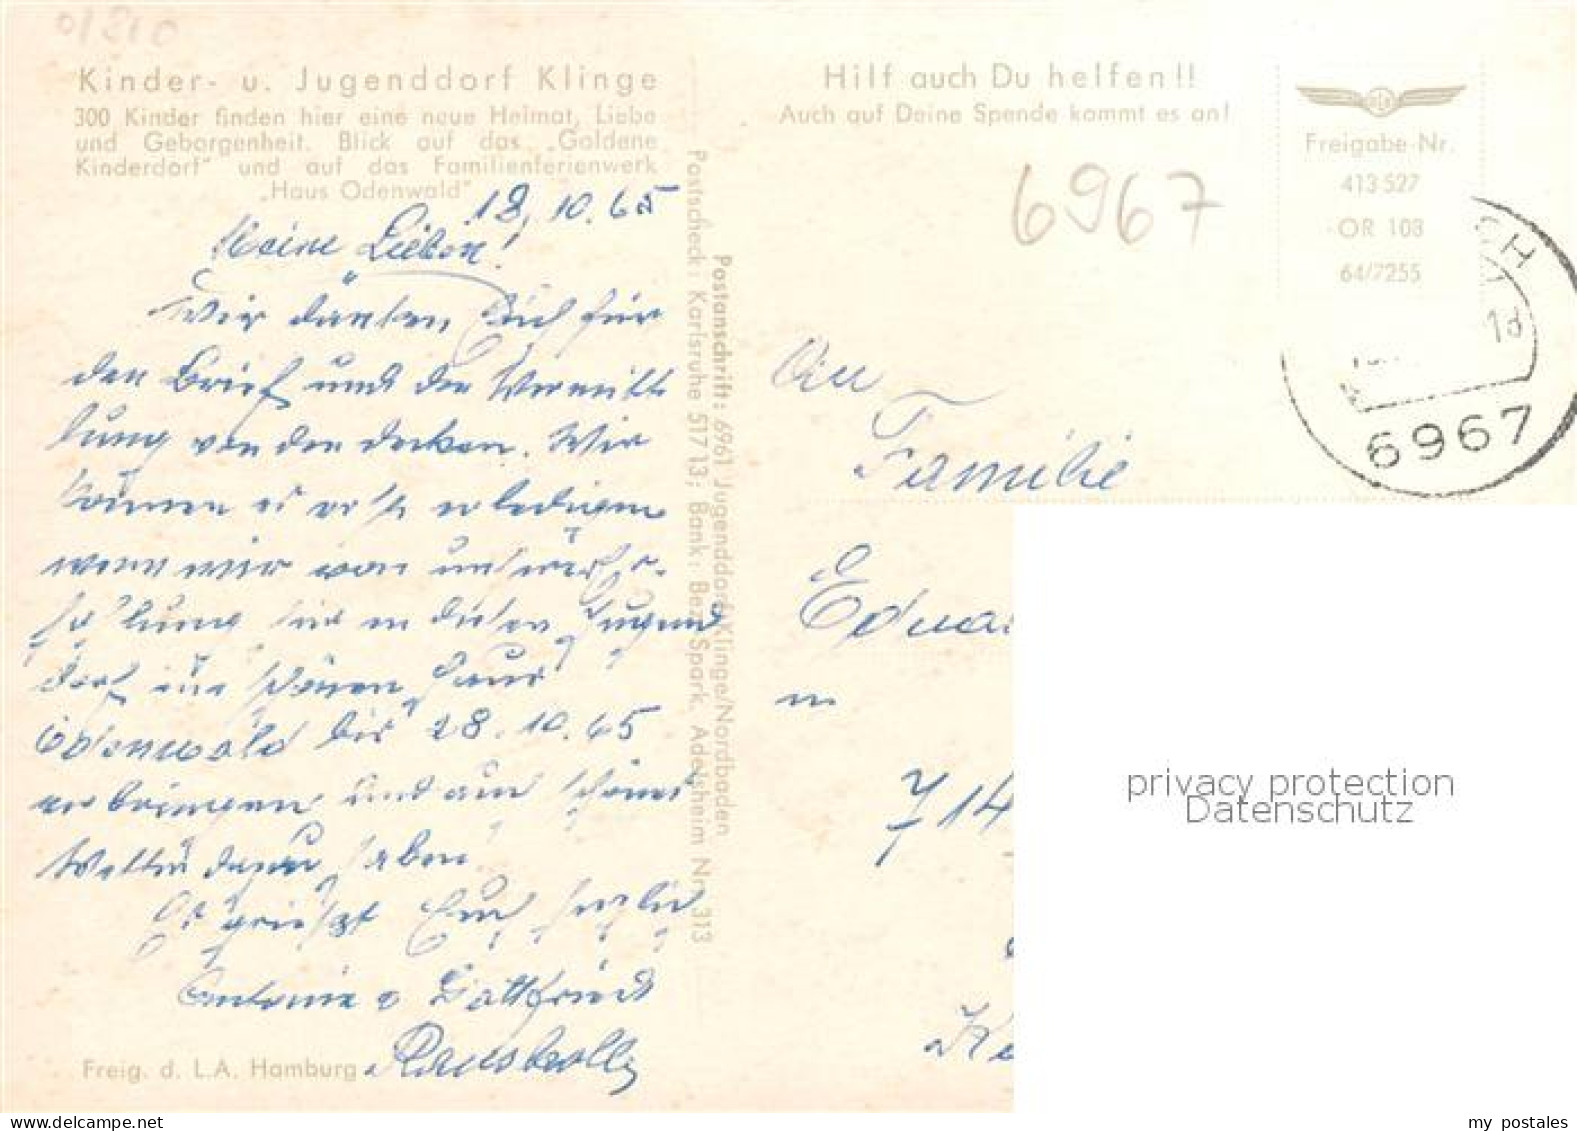 01310
Kinder- u. Jugenddorf Klinge
300 Kinder finden hier eine neue Heimat, Liebe
und Geborgenheit. Blick auf das „Goldene
Kinderdorf" und auf das Familienferienwerk
„Haus Odenwald"
18. 10. 65
Meine Lieben!
Wir danken Euch für
den Brief und die Vermitt
lung von den decken. Wir
können es erst erledigen
wenn wir von unserer
holung hir in diesen Jugend
dorf im schönen Haus
Odenwald bis 28. 10. 65
verbringen und auch schönes
Wetter dazu haben.
Es grüsst Euch herzlich
Antonie u Gottfried
Freig. d. L.A. Hamburg
Postanschrift: 6961 Jugenddorf Klinge/Nordbaden
Postscheck: Karlsruhe 51713; Bank: Bez.-Spark. Adelsheim Nr. 313
Hilf auch Du helfen!!
Auch auf Deine Spende kommt es an!
Freigabe-Nr.
413527
OR 108
64/7255
6967
CH
18
6967
An
Familie
Edua
in
714
privacy protection
Datenschutz
my postales